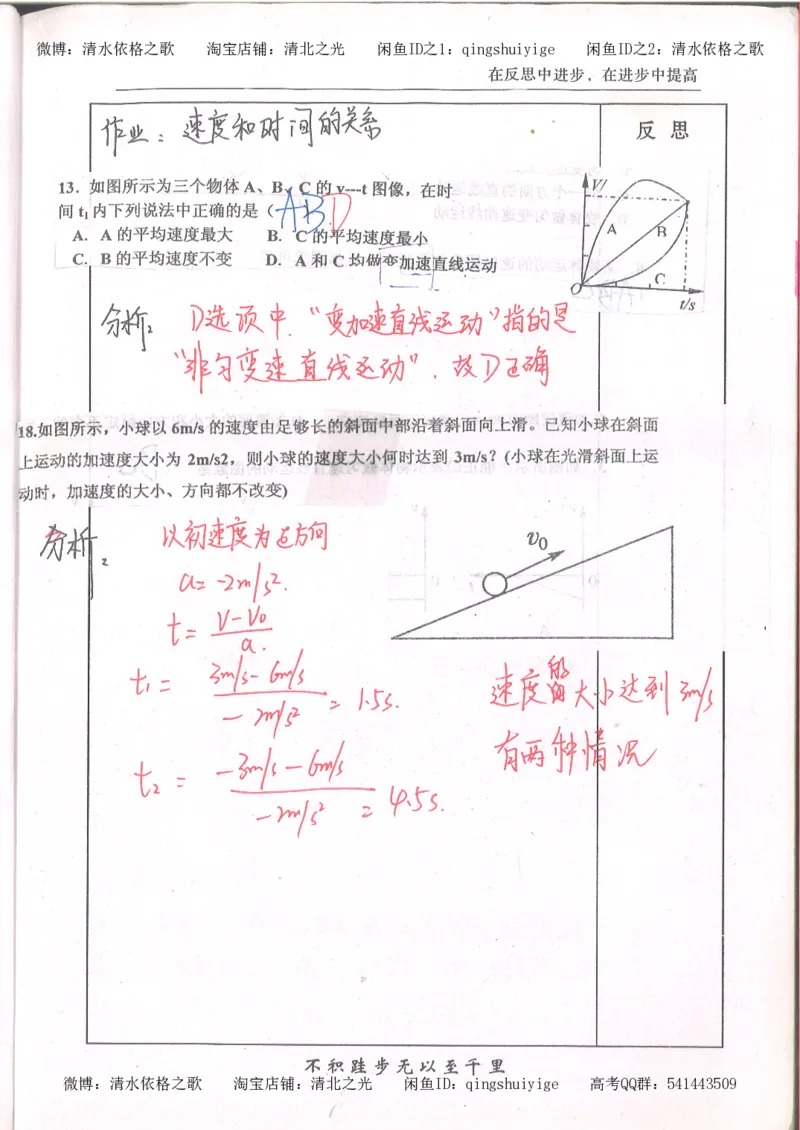 微博：清水依格之歌 淘宝店铺：清北之光 闲鱼ID之1：qingshuiyige 闲鱼ID之2：清水依格之歌
在反思中进步，在进步中提高
作业：速度和时间的关系
反思
13．如图所示为三个物体 A、B、C 的 v---t 图像，在时
间 t₁内下列说法中正确的是（ABD）
A．A 的平均速度最大 B．C 的平均速度最小
C．B 的平均速度不变 D．A 和 C 均做变加速直线运动
V/
A
B
C
O
t/s
分析：D选项中，“变加速直线运动”指的是
“非匀变速直线运动”，故D正确
18.如图所示，小球以 6m/s 的速度由足够长的斜面中部沿着斜面向上滑。已知小球在斜面
上运动的加速度大小为 2m/s2，则小球的速度大小何时达到 3m/s？(小球在光滑斜面上运
动时，加速度的大小、方向都不改变)
分析：
以初速度为正方向
a=-2m/s².
t=(V-V₀)/a.
t₁=(3m/s-6m/s)/(-2m/s²)=1.5s.
t₂=(-3m/s-6m/s)/(-2m/s²)=4.5s.
v₀
速度的大小达到3m/s
有两种情况
不积跬步无以至千里
微博：清水依格之歌 淘宝店铺：清北之光 闲鱼ID：qingshuiyige 高考QQ群：541443509